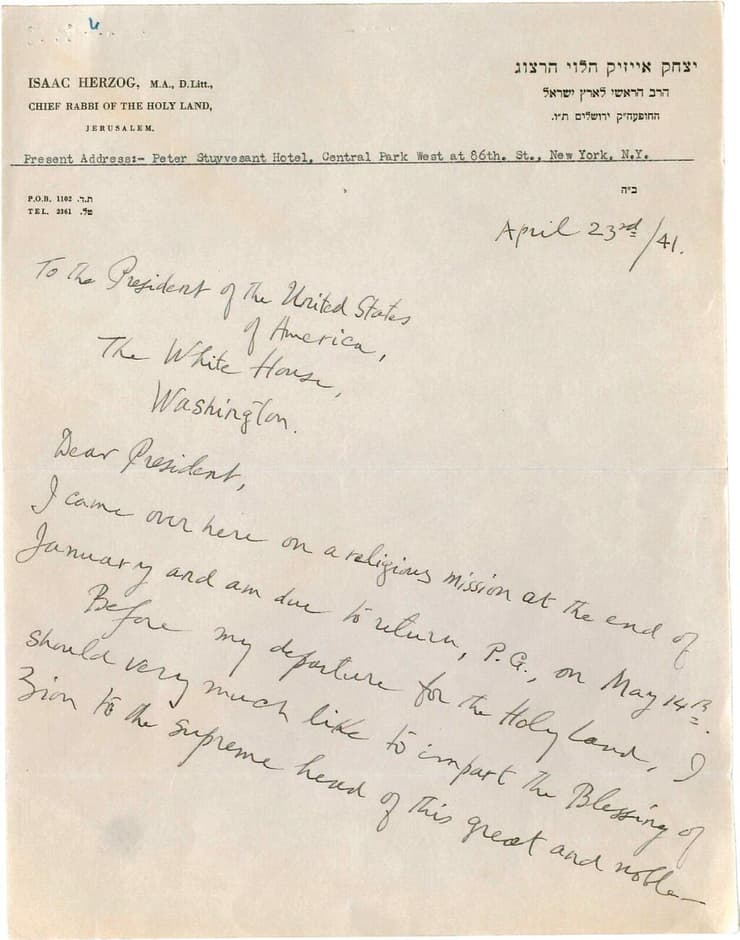 ISAAC HERZOG, M.A., D.Litt.,
CHIEF RABBI OF THE HOLY LAND,
JERUSALEM.
יצחק אייזיק הלוי הרצוג
הרב הראשי לארץ ישראל
החופעה״ק ירושלים ת״ו.
Present Address:- Peter Stuyvesant Hotel, Central Park West at 86th. St., New York, N.Y.
P.O.B. 1102 ת.ד.
TEL. 2361 טל.
ב״ה
April 23rd/41.
To the President of the United States
of America,
The White House,
Washington.
Dear President,
I came over here on a religious mission at the end of
January and am due to return, P.G., on May 14th.
Before my departure for the Holy Land, I
should very much like to impart the Blessing of
Zion to the supreme head of this great and noble—